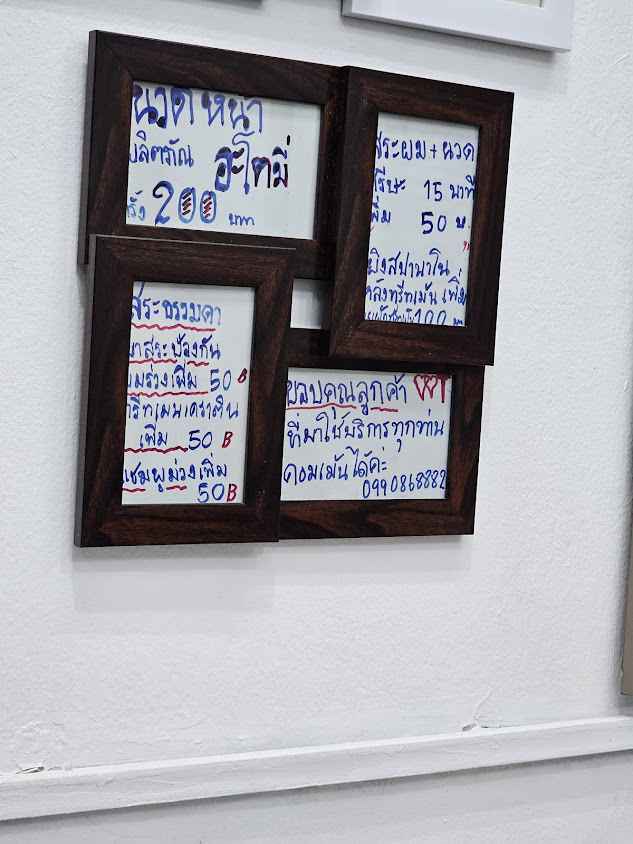 นวดหน้า
ผลิตภัณ อะโตมี่
ครั้ง 200 บาท
สระผม + นวด
ศรีษะ 15 นาที
เพิ่ม 50 บ.
หลังทรีทเม้น เพิ่ม
100
สระธรรมดา
ยาสระป้องกัน
ผมร่วงเพิ่ม 50 B
ทรีทเมน
เพิ่ม 50 B
แชมพูม่วงเพิ่ม
50 B
ขอบคุณลูกค้า
ที่มาใช้บริการทุกท่าน
คอมเม้นได้ค่ะ
0990868882